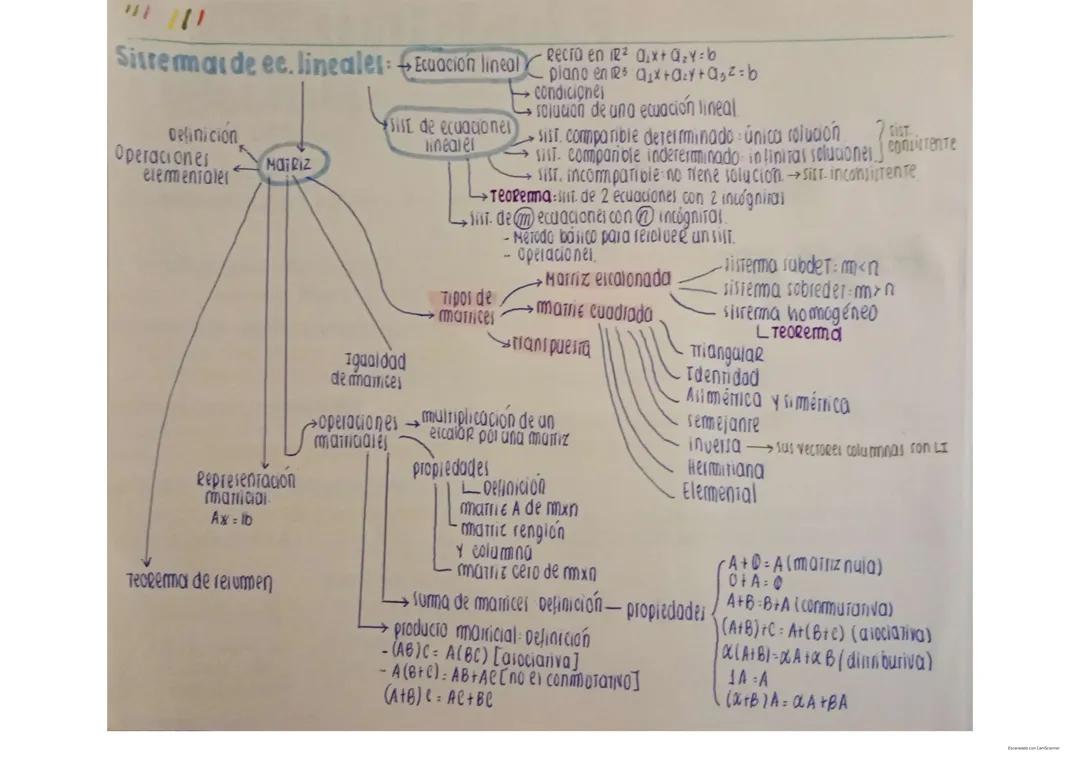 Sistemas de ec. lineales: → Ecuación lineal
Recta en ℝ² a₁x + a₂y = b
plano en ℝ³ a₁x + a₂y + a₃z = b
→ condiciones
→ solución de una ecuación lineal
Sist. de ecuaciones
lineales
→ sist. compatible determinado: única solución
→ sist. compatible indeterminado: infinitas soluciones
sist.
consistente
→ sist. incompatible: no tiene solución → sist. inconsistente
→ Teorema: sist. de 2 ecuaciones con 2 incógnitas
→ sist. de m ecuaciones con n incógnitas.
- Método básico para resolver un sist.
- operaciones.
Definición
Operaciones
elementales
MATRIZ
Tipos de
matrices
→ Matriz escalonada
sistema subdet: m<n
sistema sobredet: m>n
sistema homogéneo
Teorema
→ matriz cuadrada
Triangular
Identidad
Asimétrica y simétrica
semejante
inversa → sus vectores columnas son LI
Hermitiana
Elemental
→ transpuesta
Igualdad
de matrices
→ operaciones
matriciales
→ multiplicación de un
escalar por una matriz
propiedades
Definición
matriz A de mxn
matriz renglón
y columna
matriz cero de mxn
Representación
matricial.
Ax = b
Teorema de resumen
→ suma de matrices: Definición — propiedades
A + 0 = A (matriz nula)
0 + A = 0
A+B = B+A (conmutativa)
(A+B)+C = A+(B+C) (asociativa)
α(A+B) = αA + αB (distributiva)
1A = A
(α+B)A = αA + BA
→ producto matricial: Definición
- (AB)C = A(BC) [asociativa]
- A(B+C) = AB+AC [no es conmutativo]
(A+B)C = AC + BC
Escaneado con CamScanner